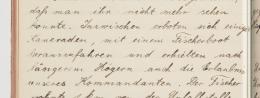 daß man ihn nicht mehr sehen
konnte. Inzwischen erboten sich einige
Kameraden, mit einem Fischerboot
hinauszufahren und erhielten, nach
längerem Zögern auch die Erlaubnis
unseres Kommandanten. Der Fischer